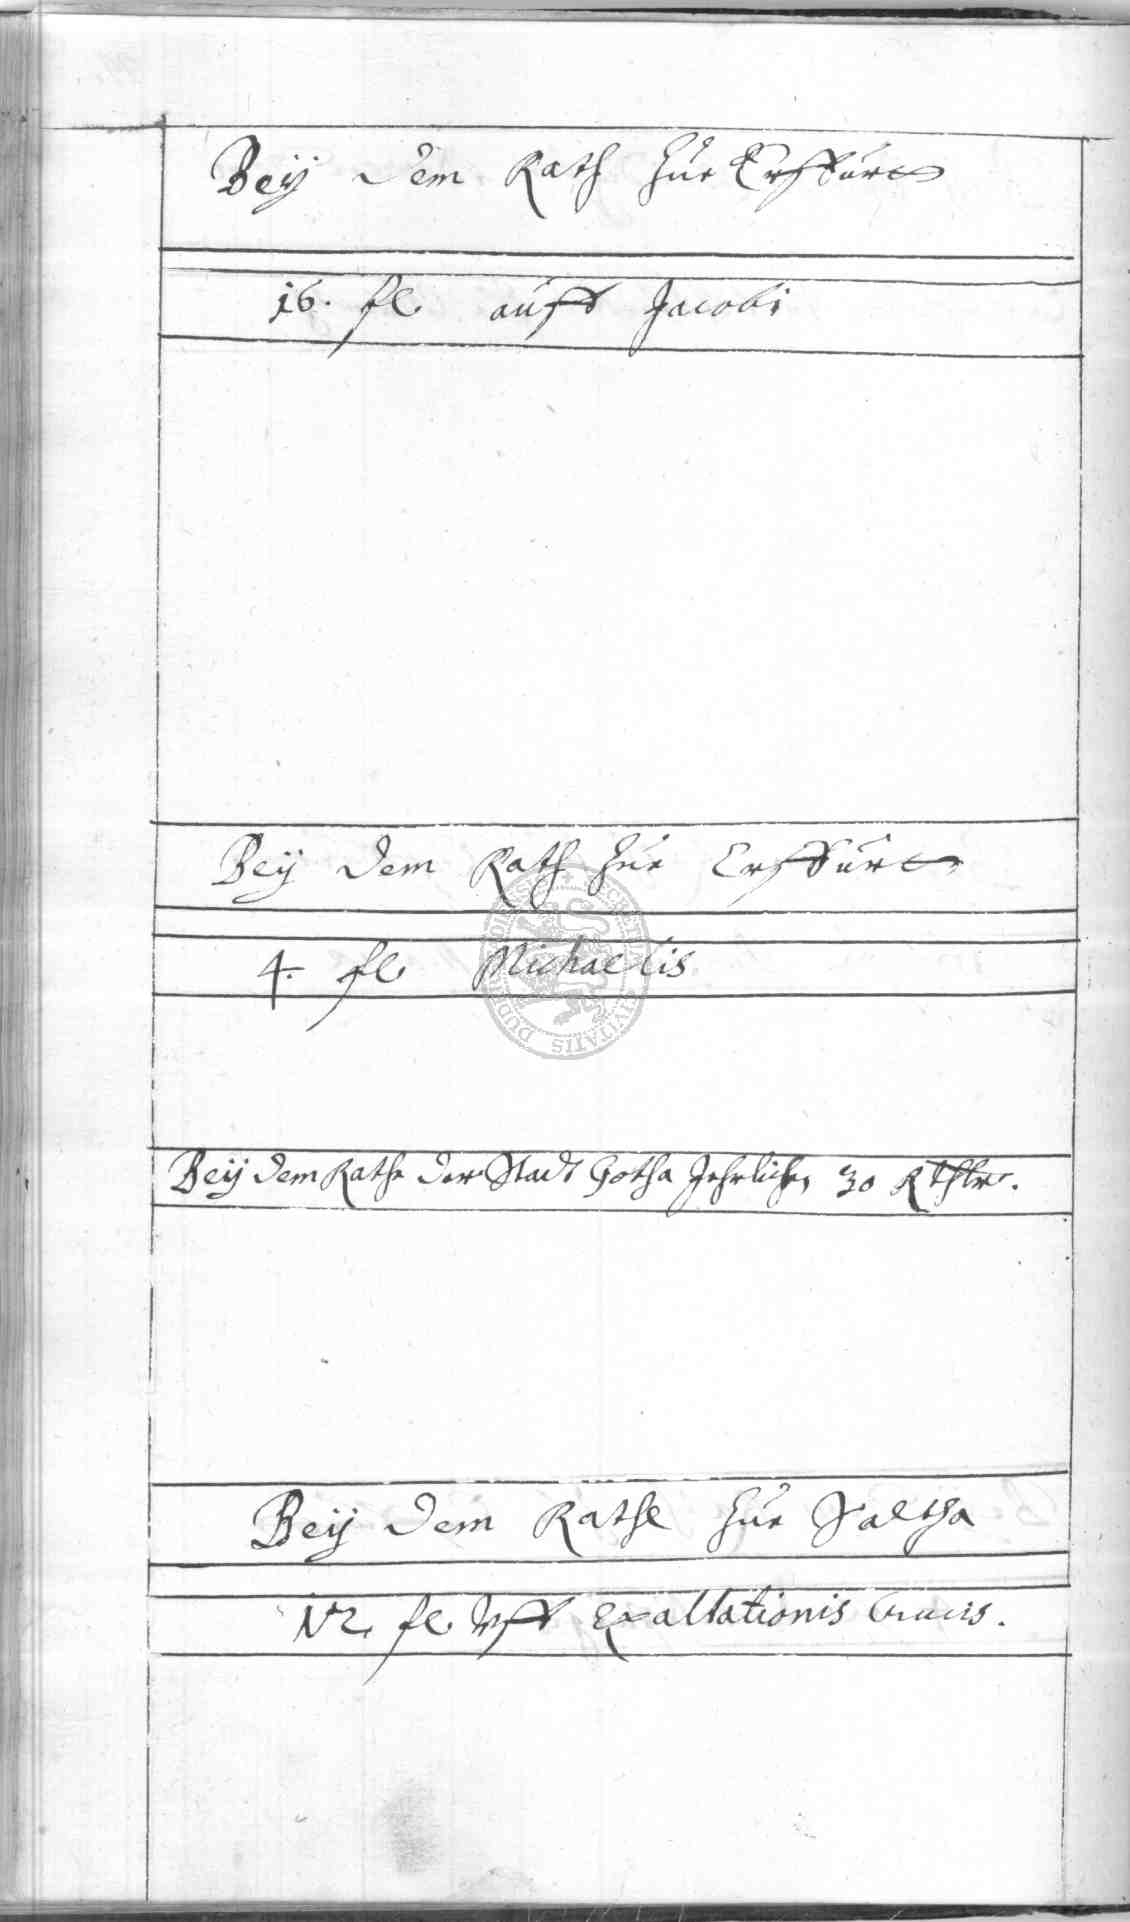 Beÿ dem Rath zue Erffurtt
16. fl. auff Jacobi
Beÿ dem Rath zue Erffurtt
4. fl. Michaelis
Beÿ dem Rathe der Stadt Gotha Jehrlichen 30 Rthlr.
Beÿ dem Rathe zue Saltza
fl. vff Exaltationis Crucis.